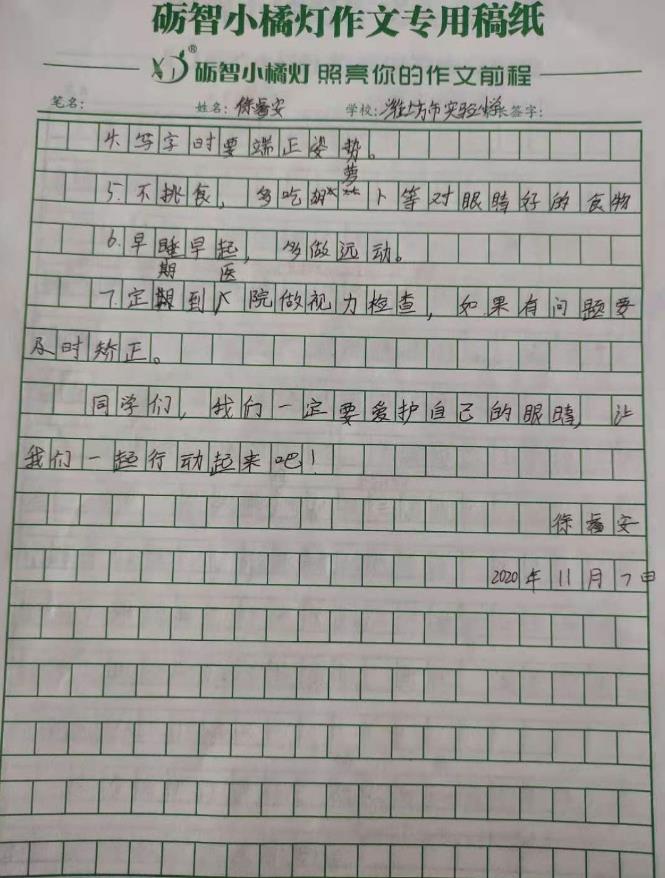 砺智小橘灯作文专用稿纸
砺智小橘灯 照亮你的作文前程
笔名: 姓名: 徐睿安 学校: 潍坊市实验小学 签字:
4.写字时要端正姿势。
5.不挑食,多吃胡萝卜等对眼睛好的食物
6.早睡早起,多做远动。
7.定期到医院做视力检查,如果有问题要
及时矫正。
同学们,我们一定要爱护自己的眼睛,让
我们一起行动起来吧!
徐睿安
2020年11月7日